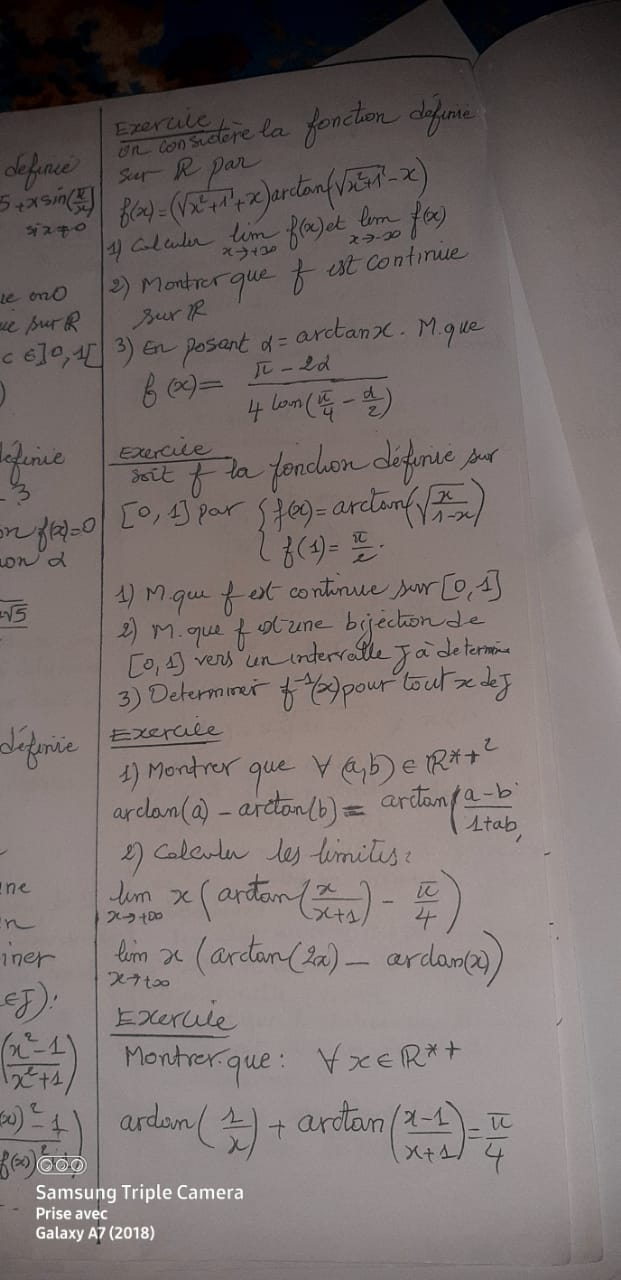 définie
5+x sin(π/x)
si x≠0
ue en 0
ue sur R
c ∈]0,1[
)
définie
- 3
on f(x)=0
ion α
√5
définie
ne
n
iner
∈J):
(x²-1/x²+1)
(x))²-1
f(x))²
Exercice
on considère la fonction définie
sur R par
f(x)=(√x²+1+x)arctan(√x²+1-x)
1) Calculer lim x→+∞ f(x) et lim x→-∞ f(x)
2) Montrer que f est continue
sur R
3) En posant α = arctan x. M.que
f(x)= π-2α / 4 tan(π/4 - α/2)
Exercice
soit f la fonction définie sur
[0,1] par { f(x)=arctan(√x/1-x)
{ f(1)= π/2.
1) M.que f est continue sur [0,1]
2) M.que f est une bijection de
[0,1] vers un intervalle J à determine
3) Determiner f⁻¹(x) pour tout x de J
Exercice
1) Montrer que ∀ (a,b) ∈ R*+²
arctan(a) - arctan(b) = arctan(a-b/1+ab
2) Calculer les limites:
lim x→+∞ x(arctan(x/x+1) - π/4)
lim x→+∞ x(arctan(2x) - arctan(x))
Exercice
Montrer que: ∀ x ∈ R*+
arctan(1/x) + arctan(x-1/x+1) = π/4
Samsung Triple Camera
Prise avec
Galaxy A7 (2018)